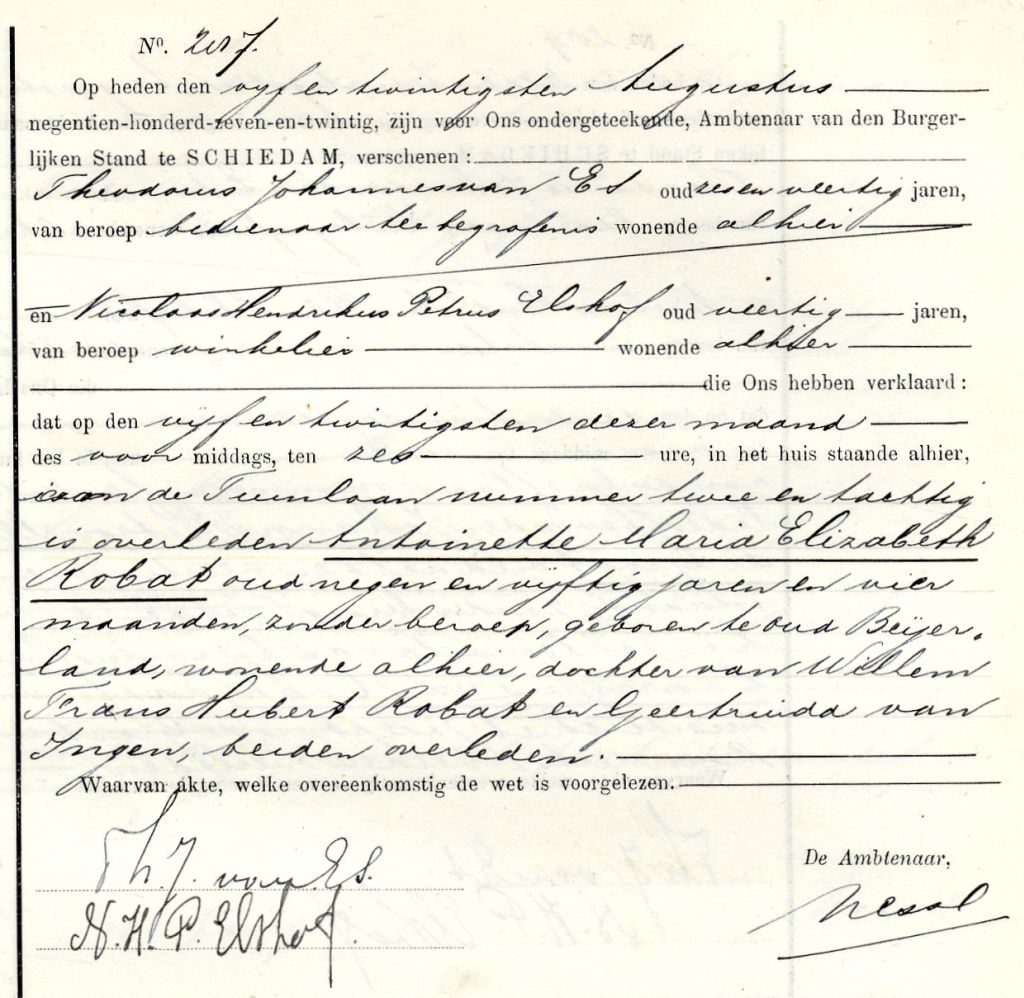 Nº. 207.
Op heden den vijf en twintigsten Augustus
negentien-honderd-zeven-en-twintig, zijn voor Ons ondergeteekende, Ambtenaar van den Burger-
lijken Stand te SCHIEDAM, verschenen:
Theodorus Johannes van Es oud zes en veertig jaren,
van beroep bedienaar ter begrafenis wonende alhier
en Nicolaas Hendrikus Petrus Elshof oud veertig jaren,
van beroep winkelier wonende alhier
die Ons hebben verklaard:
dat op den vijf en twintigsten dezer maand
des voor middags, ten zes ure, in het huis staande alhier,
aan de Tuinlaan nummer twee en tachtig
is overleden Antoinette Maria Elizabeth
Robat oud negen en vijftig jaren en vier
maanden, zonder beroep, geboren te Oud Beijer-
land, wonende alhier, dochter van Willem
Frans Hubert Robat en Geertruida van
Ingen, beiden overleden.
Waarvan akte, welke overeenkomstig de wet is voorgelezen.
Th. J. van Es.
De Ambtenaar,
N. H. P. Elshof.